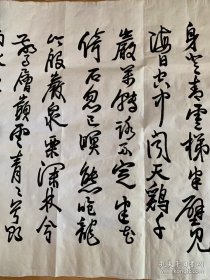 身登青雲梯半壁見
海日空中聞天鷄千
巖萬轉路不定迷花
倚石忽已暝熊咆龍
吟殷巖泉栗深林兮
驚層巔雲青青兮欲